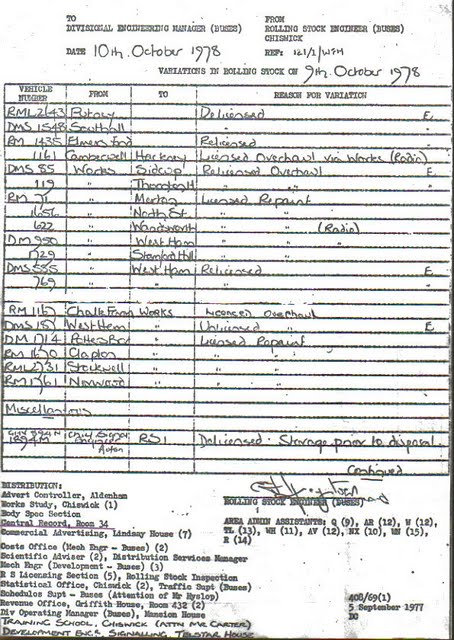 TO FROM
DIVISIONAL ENGINEERING MANAGER (BUSES) ROLLING STOCK ENGINEER (BUSES)
CHISWICK
DATE 10th. October 1978 REF: 121/1/WFH
VARIATIONS IN ROLLING STOCK ON 9th. October 1978
VEHICLE NUMBER FROM TO REASON FOR VARIATION
RML2143 Putney Delicensed E
DMS 1548 Southall "
RM 1435 Elmers End Relicensed
1161 Camberwell Hackney Licensed Overhaul via Works (Radio)
DMS 85 Works Sidcup Relicensed Overhaul E
119 " Thornton H " "
RM 71 " Merton Licensed Repaint
1656 " North St " "
622 " Wandsworth " " (Radio)
DM 950 " West Ham " "
1729 " Stamford Hill " "
DMS 555 " West Ham Relicensed E
769 " " " "
RM 1167 Chalk Farm WORKS Licenced Overhaul
DMS 151 West Ham " Unlicensed " E
DM 1714 Potters Bar " Licensed Repaint
RM 1670 Clapton " " "
RML2731 Stockwell " " "
RM 1761 Norwood " " "
Miscellaneous
1894M Chief Signal Engineer Acton RS1 Delicensed. Storage prior to disposal.
Continued
DISTRIBUTION:
Advert Controller, Aldenham ROLLING STOCK ENGINEER (BUSES)
Works Study, Chiswick (1)
Body Spec Section AREA ADMIN ASSISTANTS: Q (9), AR (12), W (12),
Central Record, Room 34 TL (13), WH (11), AV (12), NX (10), UN (15),
Commercial Advertising, Lindsay House (7) R (14)
Costs Office (Mech Engr - Buses) (2)
Scientific Adviser (2), Distribution Services Manager
Mech Engr (Development - Buses) (3)
R S Licensing Section (5), Rolling Stock Inspection
Statistical Office, Chiswick (2), Traffic Supt (Buses)
Schedules Supt - Buses (Attention of Mr Hyslop) 408/69(1)
Revenue Office, Griffith House, Room 432 (2) 5 September 1977
Div Operating Manager (Buses), Mansion House DO
TRAINING SCHOOL. CHISWICK (ATTN MR CARTER)
DEVELOPMENT ENGR. SIGNALLING, TELSTAR HOUSE